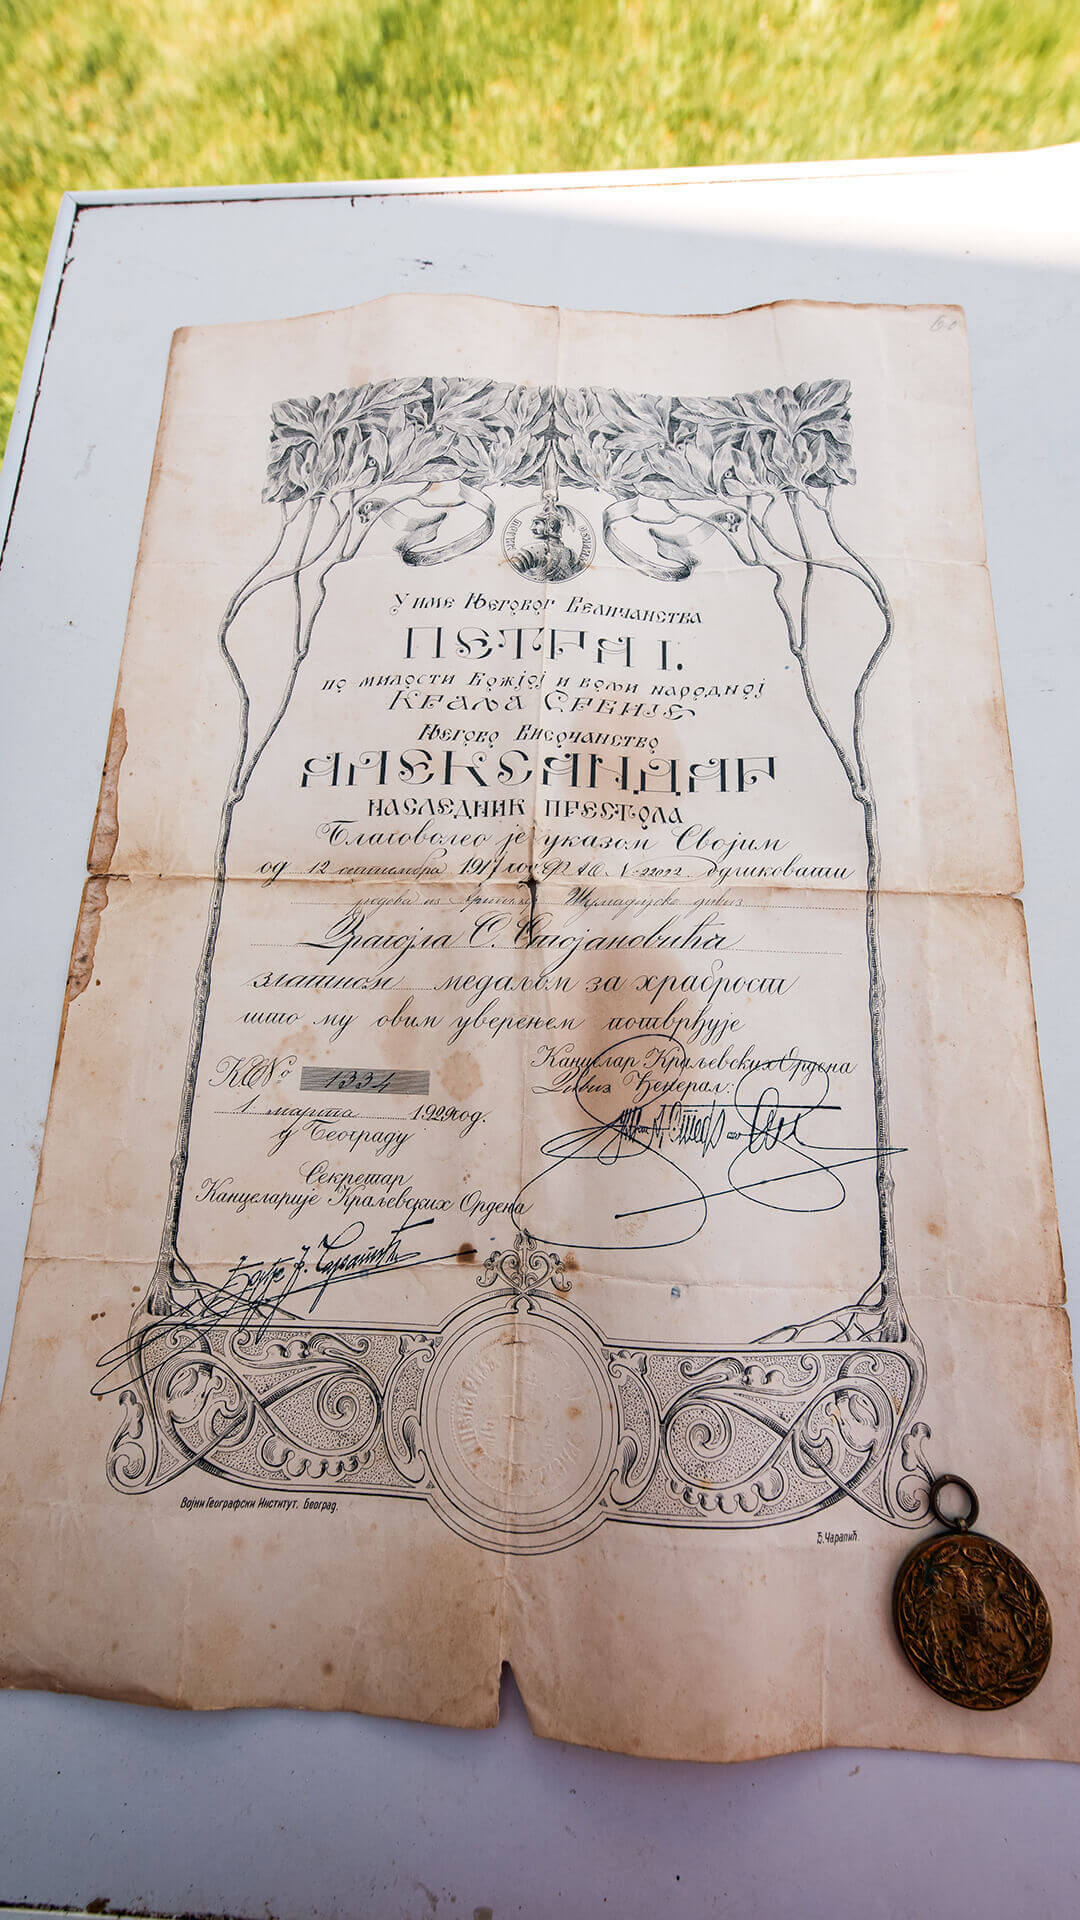 60
МИЛОШ ОБИЛИЋ
У име Његовог Величанства
ПЕТРА I.
по милости Божјој и вољи народној
Краља Србије
Његово Височанство
АЛЕКСАНДАР
НАСЛЕДНИК ПРЕСТОЛА
Благоволео је указом Својим
од 12 септембра 1917 год. ФАО № 22092 одликовати
редова из Шумадиске дивиз
Драгојла С. Стојановића
златном медаљом за храброст
што му овим уверењем потврђује
КО№ 1334
1 марта 1922 год.
у Београду
Канцелар Краљевских Ордена
Дивиз. Ђенерал:
Секретар
Канцеларије Краљевских Ордена
Војни Географски Институт. Београд.
Ђ. Чарапић.